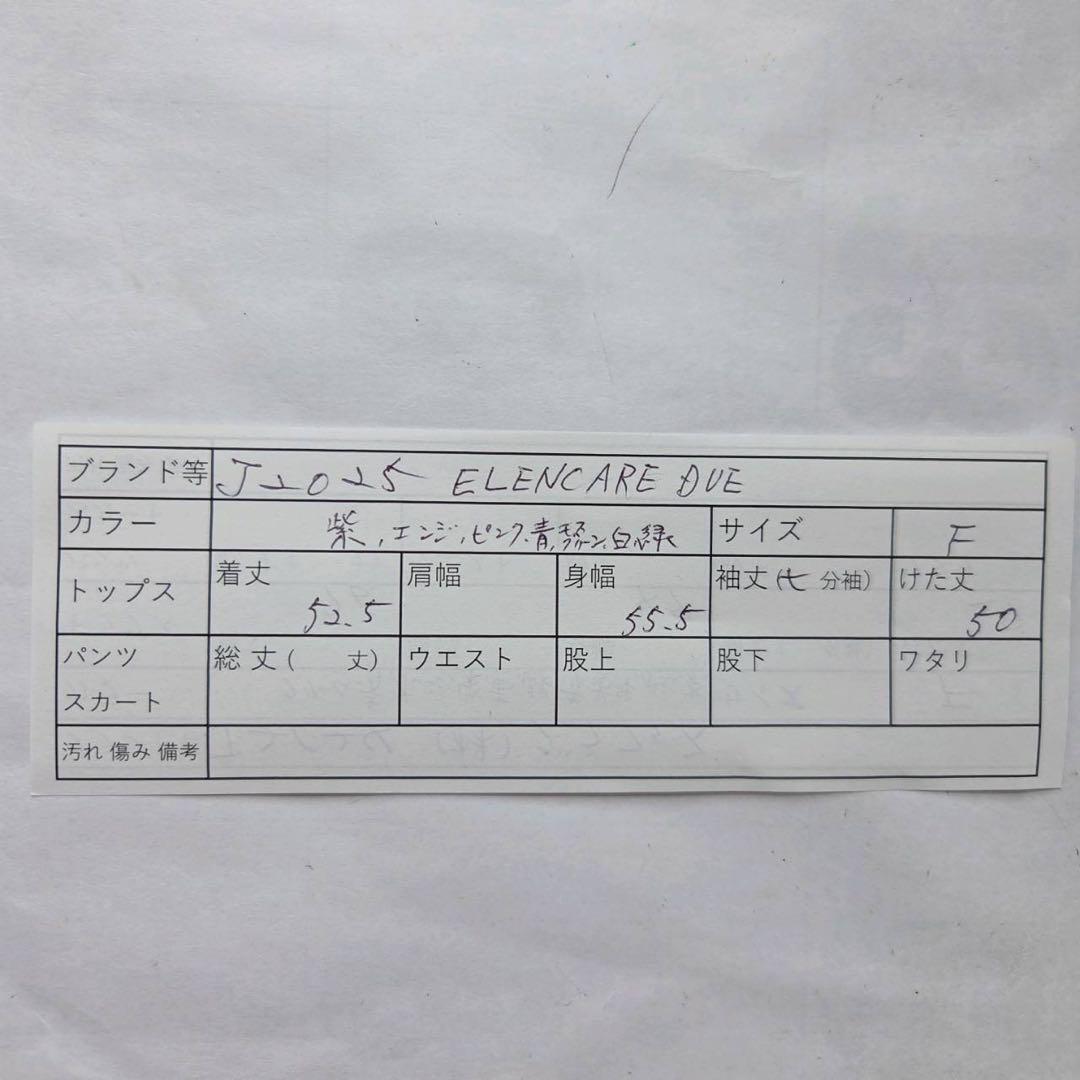 ブランド等 J2025 ELENCARE DUE
カラー 紫,エンジ,ピンク,青,モスグリーン,白,緑 サイズ F
トップス 着丈 52.5 肩幅 身幅 55.5 袖丈(七 分袖) けた丈 50
パンツ 総丈( 丈) ウエスト 股上 股下 ワタリ
スカート
汚れ 傷み 備考